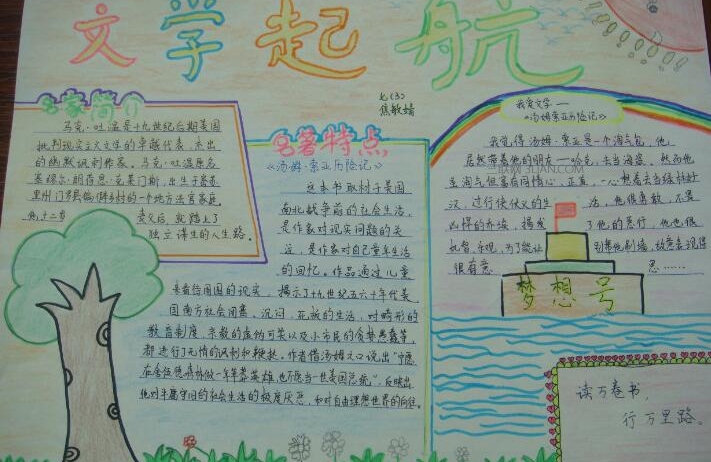 文学起航
七(3)
焦敏婧
名家简介
马克·吐温是十九世纪后期美国
批判现实主义文学的卓越代表,杰出
的幽默讽刺作家。马克·吐温原名
塞缪尔·朗荷恩·克莱门斯,出生于密苏
里州门罗县佛
的一个地方法官家庭,
他十二岁
丧父后,就踏上了
独立谋生的人生路。
名著特点
《汤姆·索亚历险记》
这本书取材于美国
南北战争前的社会生活,
是作家对现实问题的关
注,是作家对自己童年生活
的回忆。作品通过儿童
来看待周围的现实,揭示了十九世纪五六十年代美
国南方社会闭塞、沉闷、死板的生活,对畸形的
教育制度,宗教的虚伪可笑以及小市民的贪婪愚蠢等,
都进行了无情的讽刺和鞭挞。作者借汤姆之口说出“宁愿
在舍伍德森林做一年草莽英雄,也不愿当一世美国总统”,反映出
他对平庸守旧的社会生活的极度厌恶,和对自由理想世界的向往。
我爱文学——
《汤姆·索亚历险记》
我觉得汤姆·索亚是一个淘气包,他
居然带着他的朋友——哈克,去当海盗。然而他
虽淘气但富有同情心,正直,一心想着去当绿林好
汉,过行侠仗义的生
活,他很勇敢,不畏
凶悍的乔埃,揭发
了他的恶行,他也很
机智、乐观,为了能让
别帮他刷墙,故意表现得
很有意
思……
梦想号
读万卷书,
行万里路。
JIAN.COM